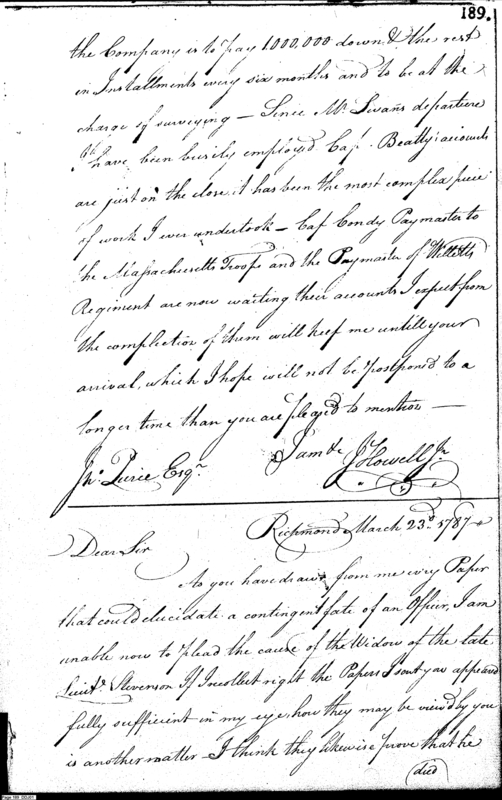 189.
the Company is to pay 1.000.000 down & the rest
in Installments every six months and to be at the
charge of surveying – Since Mr. Swans departure
I have been busily employed Cap. Beatty's accounts
are just on the close, it has been the most complex piece
of work I ever undertook – Cap Condy Paymaster to
the Massachusetts Troops and the Paymaster of Willetts
Regiment are now waiting their accounts I expect from
the completion of them will keep me untill your
arrival, which I hope will not be postponed to a
longer time than you are pleased to mention —
I am &c J. Howell Jr
Jno. Pierce Esqr.
Richmond March 23d. 1787
Dear Sir
As you have drawn from me every Paper
that could elucidate a contingent fate of an Officer, I am
unable now to plead the cause of the Widow of the late
Lieut. Stevenson If I recollect right the Papers I sent you appeared
fully sufficient in my eye, how they may be view'd by you
is another matter – I think they likewise prove that he
died